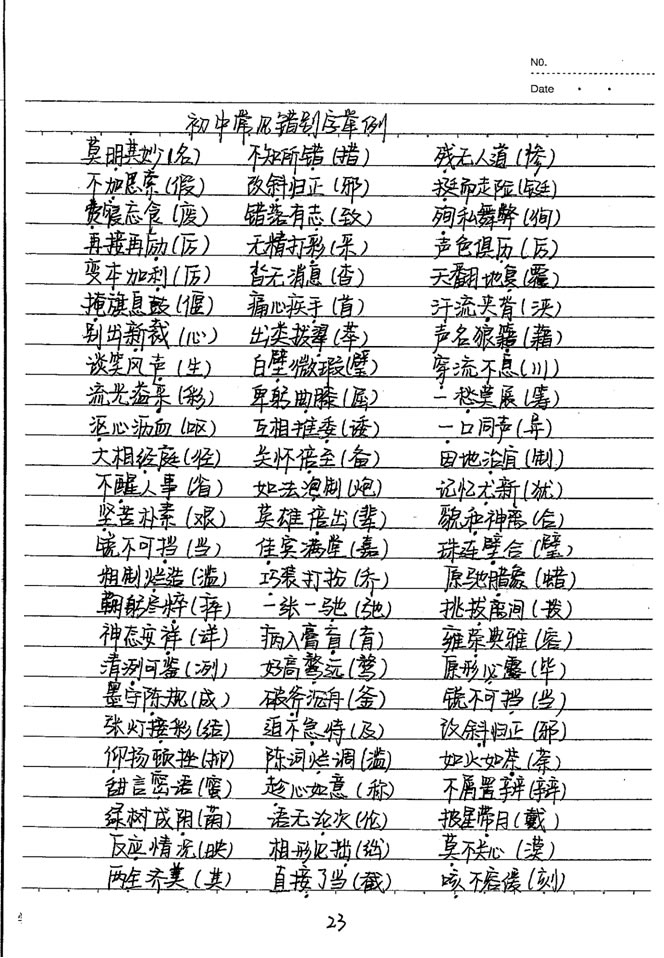 NO.
Date
初中常见错别字举例
莫明其妙(名) 不知所错(措) 残无人道(惨)
不加思索(假) 改斜归正(邪) 挺而走险(铤)
费寝忘食(废) 错落有志(致) 殉私舞弊(徇)
再接再励(厉) 无精打彩(采) 声色俱历(厉)
变本加利(厉) 沓无消息(杳) 天翻地复(覆)
掩旗息鼓(偃) 痛心疾手(首) 汗流夹背(浃)
别出新裁(心) 出类拔翠(萃) 声名狼籍(藉)
谈笑风声(生) 白壁微瑕(璧) 穿流不息(川)
流光溢采(彩) 卑躬曲膝(屈) 一愁莫展(筹)
沤心沥血(呕) 互相推委(诿) 一口同声(异)
大相经庭(径) 关怀倍至(备) 因地治宜(制)
不醒人事(省) 如法泡制(炮) 记忆尤新(犹)
坚苦朴素(艰) 英雄倍出(辈) 貌和神离(合)
锐不可挡(当) 佳宾满堂(嘉) 珠连壁合(璧)
粗制烂造(滥) 巧装打扮(乔) 原驰腊象(蜡)
鞠躬尽粹(瘁) 一张一驰(弛) 挑拔离间(拨)
神态安祥(详) 病入膏育(肓) 雍荣典雅(容)
清洌可鉴(冽) 好高鹜远(骛) 原形必露(毕)
墨守陈规(成) 破斧沉舟(釜) 锐不可挡(当)
张灯接彩(结) 迫不急待(及) 改斜归正(邪)
仰扬顿挫(抑) 陈词烂调(滥) 如火如茶(荼)
甜言密语(蜜) 趁心如意(称) 不屑置辨(辩)
绿树成阴(荫) 语无论次(伦) 披星带月(戴)
反应情况(映) 相形见拙(绌) 莫不关心(漠)
两全济美(其) 直接了当(截) 咳不容缓(刻)
23